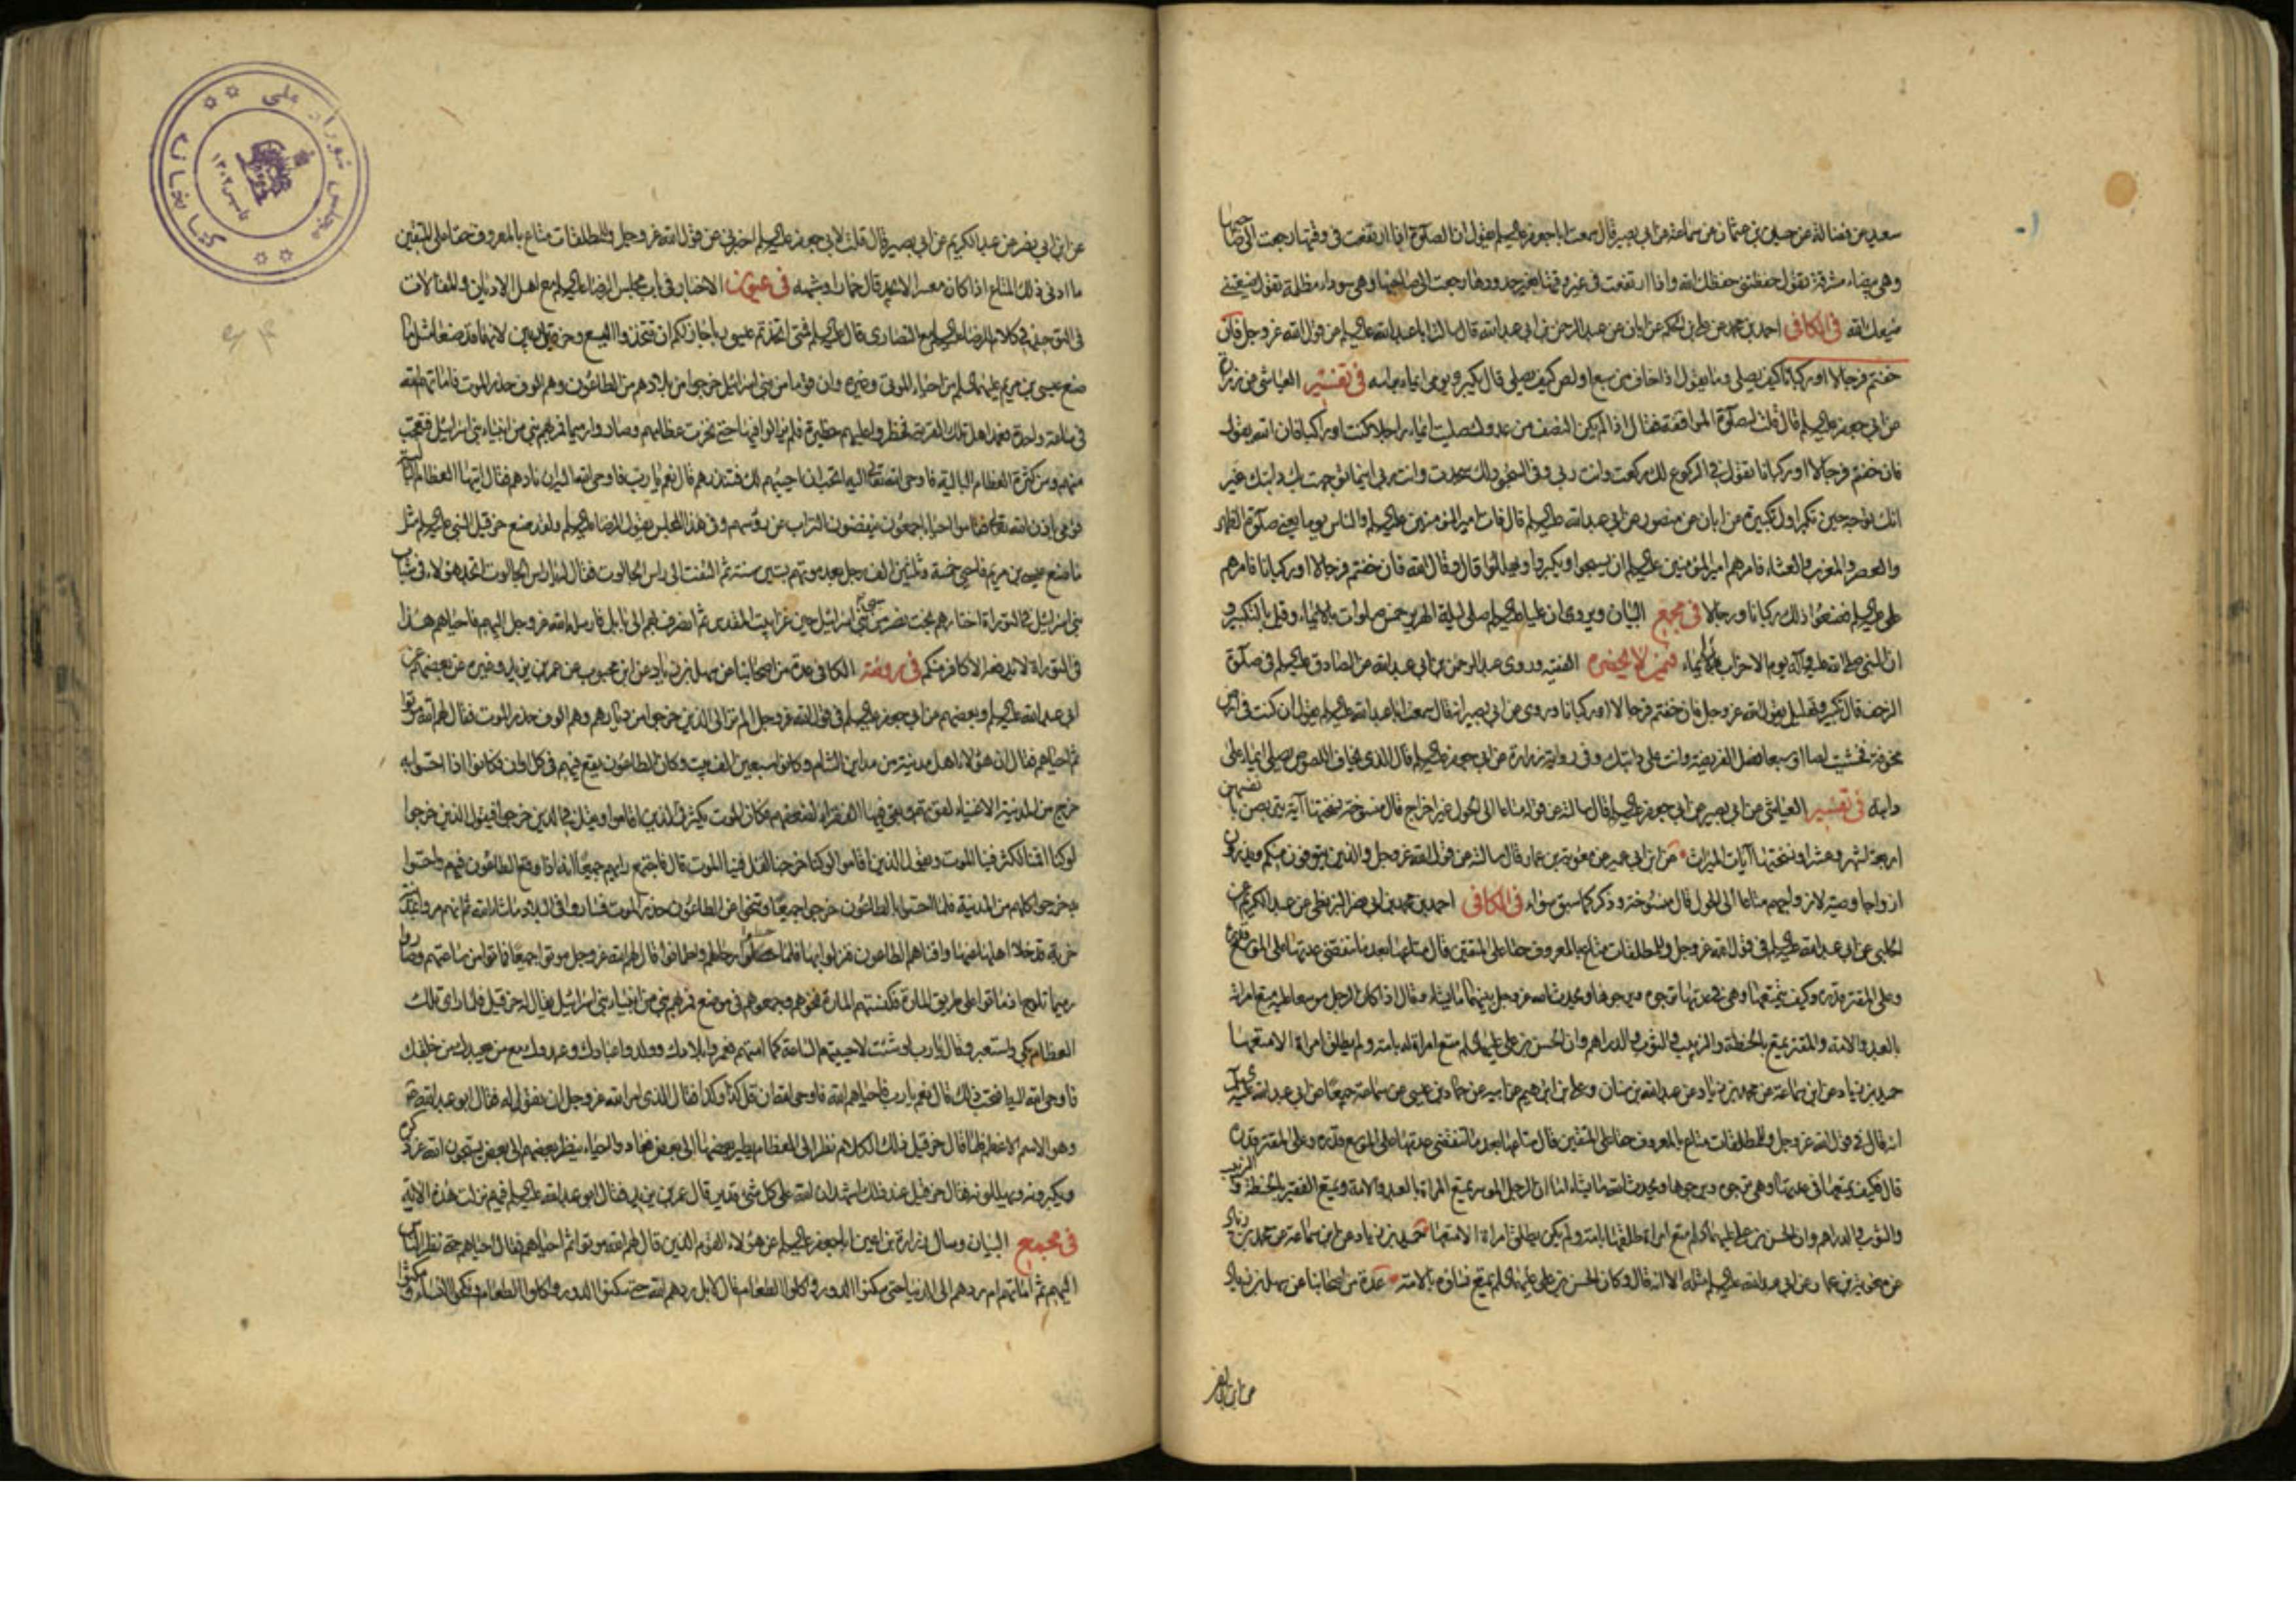 سعيد عن فضالة عن حسين بن عثمان عن سماعة عن ابي بصير قال سمعت ابا جعفر عليه السلم يقول ان الصلوة اذا ارتفعت في وقتها رجعت الى صاحبها
وهي بيضاء مشرقة تقول حفظتني حفظك الله واذا ارتفعت في غير وقتها بغير حدودها رجعت الى صاحبها وهي سوداء مظلمة تقول ضيعتني
ضيعك الله في الكافي احمد بن محمد عن علي بن الحكم عن ابان عن عبد الرحمن بن ابي عبد الله قال سالت ابا عبد الله عليه السلم عن قول الله عز وجل فان
خفتم فرجالا او ركبانا كيف يصلي وما يقول اذا خاف من سبع او لص كيف يصلي قال يكبر ويومي ايماء براسه في تفسير العياشي عن زرارة
عن ابي جعفر عليه السلم قال قلت له صلوة المواقفة فقال اذا لم يكن النصف من عدوك صليت ايماء راجلا كنت او راكبا فان الله يقول
فان خفتم فرجالا او ركبانا تقول في الركوع لك ركعت وانت ربي وفي السجود لك سجدت وانت ربي اينما توجهت بك دابتك غير
انك توجه حين تكبر اول تكبيرة عن ابان عن منصور عن ابي عبد الله عليه السلم قال فات امير المؤمنين عليه السلم والناس يوما يعني صلوة الظهر
والعصر والمغرب والعشاء فامرهم امير المؤمنين عليه السلم ان يسبحوا ويكبروا ويهللوا قال وقال الله فان خفتم فرجالا او ركبانا فامرهم
علي عليه السلم فصنعوا ذلك ركبانا ورجالا في مجمع البيان ويروى ان عليا عليه السلم صلى ليلة الهرير خمس صلوات بالايماء وقيل بالتكبير و
ان النبي صلى الله عليه وآله يوم الاحزاب ايماء فيمن لا يحضره الفقيه وروى عبد الرحمن بن ابي عبد الله عن الصادق عليه السلم في صلوة
الزحف قال تكبير وتهليل يقول الله عز وجل فان خفتم فرجالا او ركبانا وروى عن ابي بصير انه قال سمعت ابا عبد الله عليه السلم يقول ان كنت في ارض
مخوفة فخشيت لصا او سبعا فصل الفريضة وانت على دابتك وفي رواية زرارة عن ابي جعفر عليه السلم قال الذي يخاف اللصوص يصلي ايماء على
دابته في تفسير العياشي عن ابي بصير عن ابي جعفر عليه السلم قال سالته عن قوله متاعا الى الحول غير اخراج قال منسوخة نسختها آية يتربصن بانفسهن
اربعة اشهر وعشرا ونسختها آيات الميراث عن ابن ابي عمير عن معوية بن عمار قال سالته عن قول الله عز وجل والذين يتوفون منكم ويذرون
ازواجا وصية لازواجهم متاعا الى الحول قال منسوخة وذكر كما سبق سواء في الكافي احمد بن محمد بن ابي نصر البزنطي عن عبد الكريم عن
الحلبي عن ابي عبد الله عليه السلم في قول الله عز وجل وللمطلقات متاع بالمعروف حقا على المتقين قال متاعها بعد ما تنقضي عدتها على الموسع قدره
وعلى المقتر قدره وكيف يمتعها وهي في عدتها ترجوه ويرجوها ويحدث الله عز وجل بينهما ما يشاء وقال اذا كان الرجل موسعا عليه متع امراته
بالعبد والامة والمقتر يمتع بالحنطة والزبيب والثوب والدراهم وان الحسن بن علي عليهما السلم متع امراة له بامة ولم يطلق امراة الا متعها
حميد بن زياد عن ابن سماعة عن محمد بن زياد عن عبد الله بن سنان وعلي بن ابرهيم عن ابيه عن عثمان بن عيسى عن سماعة جميعا عن ابي عبد الله عليه السلم
انه قال في قول الله عز وجل وللمطلقات متاع بالمعروف حقا على المتقين قال متاعها بعد ما تنقضي عدتها على الموسع قدره وعلى المقتر قدره
قال فكيف يمتعها في عدتها وهي ترجوه ويرجوها ويحدث الله ما يشاء اما ان الرجل الموسر يمتع المراة بالعبد والامة ويمتع الفقير بالحنطة والزبيب
والثوب والدراهم وان الحسن بن علي عليهما السلم متع امراة طلقها بامة ولم يكن يطلق امراة الا متعها حميد بن زياد عن ابن سماعة عن محمد بن زياد
عن معوية بن عمار عن ابي عبد الله عليه السلم مثله الا انه قال وكان الحسن بن علي عليهما السلم يمتع نساؤه بالامة عدة من اصحابنا عن سهل بن زياد
عن ابن ابي نصر
عن ابن ابي نصر عن عبد الكريم عن ابي بصير قال قلت لابي جعفر عليه السلم اخبرني عن قول الله عز وجل وللمطلقات متاع بالمعروف حقا على المتقين
ما ادنى ذلك المتاع اذا كان معسرا لا يجد قال خمار او شبهه في عيون الاخبار في باب مجلس الرضا عليه السلم مع اهل الاديان والمقالات
في التوحيد في كلام للرضا عليه السلم مع النصارى قال عليه السلم فمتى اتخذتم عيسى ربا جاز لكم ان تتخذوا اليسع وحزقيل ربين لانهما قد صنعا مثل ما
صنع عيسى بن مريم عليهما السلم من احياء الموتى وغيره وان قوما من بني اسرائيل خرجوا من بلادهم من الطاعون وهم الوف حذر الموت فاماتهم الله
في ساعة واحدة فعمد اهل تلك القرية فحظروا عليهم حظيرة فلم يزالوا فيها حتى نخرت عظامهم وصاروا رميما فمر بهم نبي من انبياء بني اسرائيل فتعجب
منهم ومن كثرة العظام البالية فاوحى الله تعالى اليه اتحب ان احييهم لك فتنذرهم قال نعم يا رب فاوحى الله اليه ان نادهم فقال ايتها العظام البالية
قومي باذن الله تعالى فقاموا احياء اجمعون ينفضون التراب عن رؤسهم وفي هذا المجلس يقول الرضا عليه السلم ولقد صنع حزقيل النبي عليه السلم مثل
ما صنع عيسى بن مريم فاحيى خمسة وثلثين الف رجل بعد موتهم بستين سنة ثم التفت الى راس الجالوت فقال له يا راس الجالوت اتجد هؤلاء في شباب
بني اسرائيل في التوراة اختارهم بخت نصر من سبي بني اسرائيل حين غزا بيت المقدس ثم انصرف بهم الى بابل فارسله الله عز وجل اليهم فاحياهم هذا
في التوراة لا يدفعه الا كافر منكم في روضة الكافي عدة من اصحابنا عن سهل بن زياد عن ابن محبوب عن عمر بن يزيد وغيره عن بعضهم عن
ابي عبد الله عليه السلم وبعضهم عن ابي جعفر عليه السلم في قول الله عز وجل الم تر الى الذين خرجوا من ديارهم وهم الوف حذر الموت فقال لهم الله موتوا
ثم احياهم فقال ان هؤلاء اهل مدينة من مداين الشام وكانوا سبعين الف بيت وكان الطاعون يقع فيهم في كل اوان فكانوا اذا احسوا به
خرج من المدينة الاغنياء لقوتهم وبقي فيها الفقراء لضعفهم فكان الموت يكثر في الذين اقاموا ويقل في الذين خرجوا فيقول الذين خرجوا
لو كنا اقمنا لكثر فينا الموت ويقول الذين اقاموا لو كنا خرجنا لقل فينا الموت قال فاجتمع رايهم جميعا انه اذا وقع الطاعون فيهم واحسوا
به خرجوا كلهم من المدينة فلما احسوا بالطاعون خرجوا جميعا وتنحوا عن الطاعون حذر الموت فساروا في البلاد ما شاء الله ثم انهم مروا بمدينة
خربة قد خلا اهلها عنها وافناهم الطاعون فنزلوا بها فلما حطوا رحالهم واطمانوا قال لهم الله عز وجل موتوا جميعا فماتوا من ساعتهم وصاروا
رميما تلوح فماتوا على طريق المارة فكنستهم المارة فنحوهم وجمعوهم في موضع فمر بهم نبي من انبياء بني اسرائيل يقال له حزقيل فلما راى تلك
العظام بكى واستعبر وقال يا رب لو شئت لاحييتهم الساعة كما امتهم فعمروا بلادك وولدوا عبادك وعبدوك مع من يعبدك من خلقك
فاوحى الله اليه افتحب ذلك قال نعم يا رب فاحياهم الله فاوحى الله ان قل كذا وكذا فقال الذي امره الله عز وجل ان يقوله فقال ابو عبد الله
وهو الاسم الاعظم فلما قال حزقيل ذلك الكلام نظر الى العظام يطير بعضها الى بعض فعادوا احياء ينظر بعضهم الى بعض يسبحون الله عز ذكره
ويكبرونه ويهللونه فقال حزقيل عند ذلك اشهد ان الله على كل شئ قدير قال عمر بن يزيد فقال ابو عبد الله عليه السلم فيهم نزلت هذه الاية
في مجمع البيان وسال زرارة بن اعين ابا جعفر عليه السلم عن هؤلاء القوم الذين قال لهم الله موتوا ثم احياهم فقال احياهم حتى نظر الناس
اليهم ثم اماتهم ام ردهم الى الدنيا حتى سكنوا الدور واكلوا الطعام قال لا بل ردهم الله حتى سكنوا الدور واكلوا الطعام ونكحوا النساء ومكثوا
مجلس شورای ملی
کتابخانه